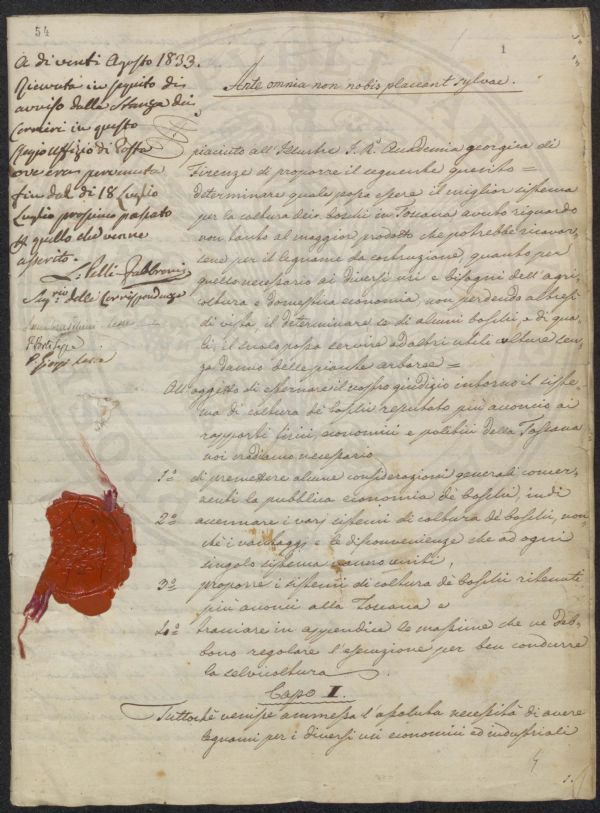 54
1
A dì venti Agosto 1833.
Ricevuta in seguito di
avviso dalla Stanza dei
Corrieri in questo
Regio Uffizio di Posta
ove era pervenuta
fin dal dì 18 Luglio
Luglio prossimo passato
quello che venne
asserito.
L. Pelli-Fabbroni
Seg.rio delle Corrispondenze
Ante omnia non nobis placeant sylvae.
piaciuto all'Illustre I. R. Accademia georgica di
Firenze di proporre il seguente quesito =
determinare quale possa essere il miglior sistema
per la coltura dei boschi in Toscana avuto riguardo
non tanto al maggior prodotto che potrebbe ricavar-
sene per il legname da costruzione, quanto per
quello necessario ai diversi usi e bisogni dell'agri-
coltura e domestica economia, non perdendo altresì
di vista, il determinare se di alcuni boschi, e di qua-
li, il suolo possa servire ad altri utili colture sen-
za danno delle piante arboree =
All'oggetto di esternare il nostro giudizio intorno il siste-
ma di coltura de' boschi reputato più acconcio ai
rapporti fisici, economici e politici della Toscana
noi crediamo necessario
1º di premettere alcune considerazioni generali concer-
nenti la pubblica economia de' boschi, indi
2º accennare i varj sistemi di coltura de' boschi, non-
chè i vantaggi e le disconvenienze che ad ogni
singolo sistema vanno uniti,
3º proporre i sistemi di coltura de' boschi ritenuti
più acconci alla Toscana e
4º tracciare in appendice le massime che ne deb-
bono regolare l'esecuzione per ben condurre
la selvicoltura
Capo I.
Tuttochè venisse ammessa l'assoluta necessità di avere
legnami per i diversi usi economici ed industriali